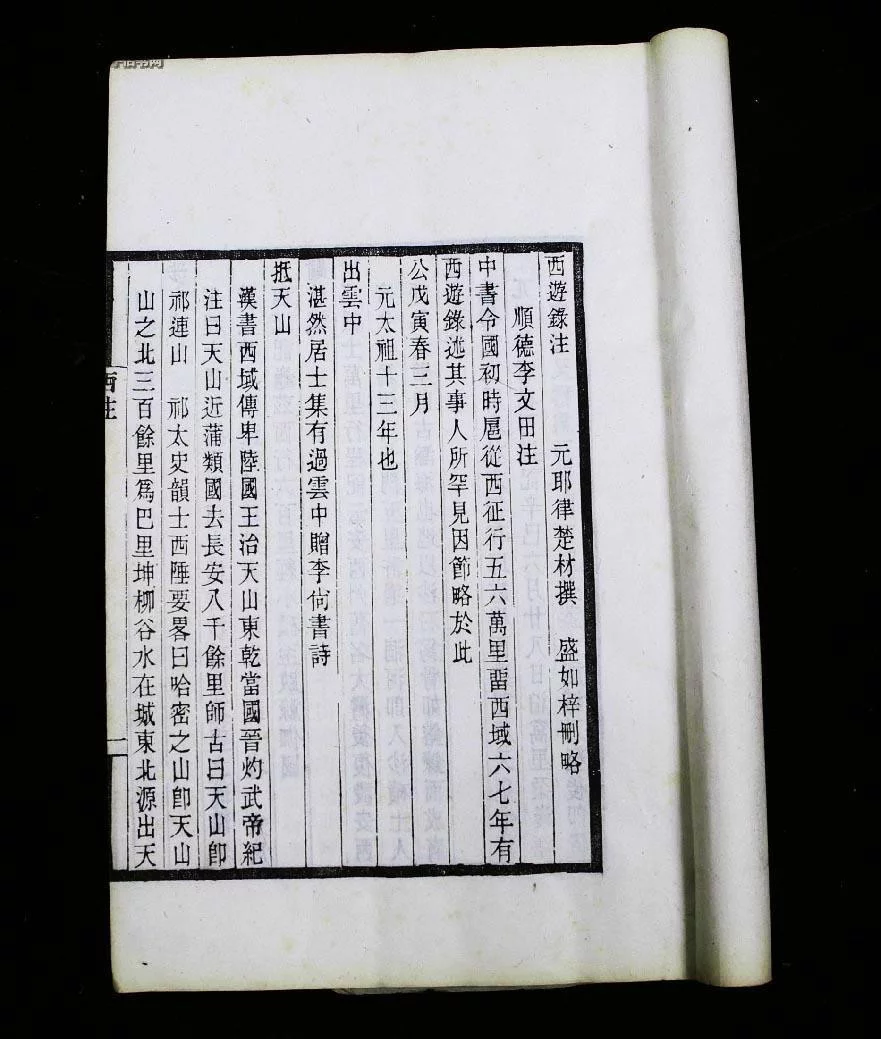 西遊錄注　元耶律楚材撰　盛如梓刪略
順德李文田注
中書令國初時扈從西征行五六萬里畱西域六七年有
西遊錄述其事人所罕見因節略於此
公戊寅春三月
元太祖十三年也
出雲中
湛然居士集有過雲中贈李尙書詩
抵天山
漢書西域傳卑陸國王治天山東乾當國晉灼武帝紀
注曰天山近蒲類國去長安八千餘里師古曰天山卽
祁連山　祁太史韻士西陲要畧曰哈密之山卽天山
山之北三百餘里爲巴里坤柳谷水在城東北源出天
西注
一